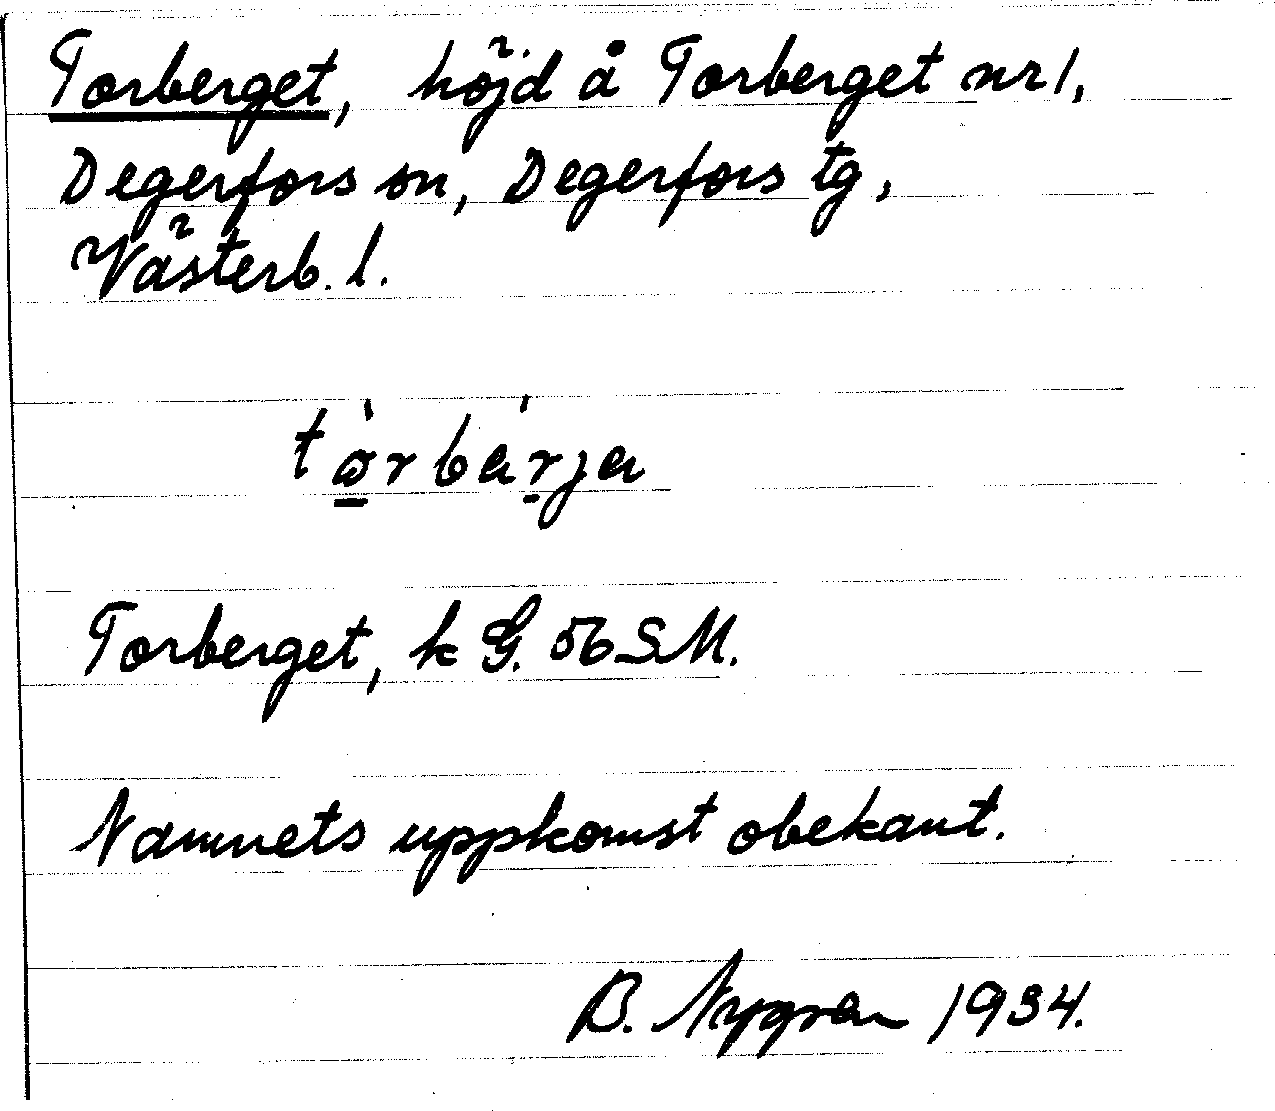 Torberget, höjd å Torberget nr 1,
Degerfors sn, Degerfors tg,
Västerb. l.
tòrbárja
Torberget, k G. 56 SM.
Namnets uppkomst obekant.
B. Nygren 1934.